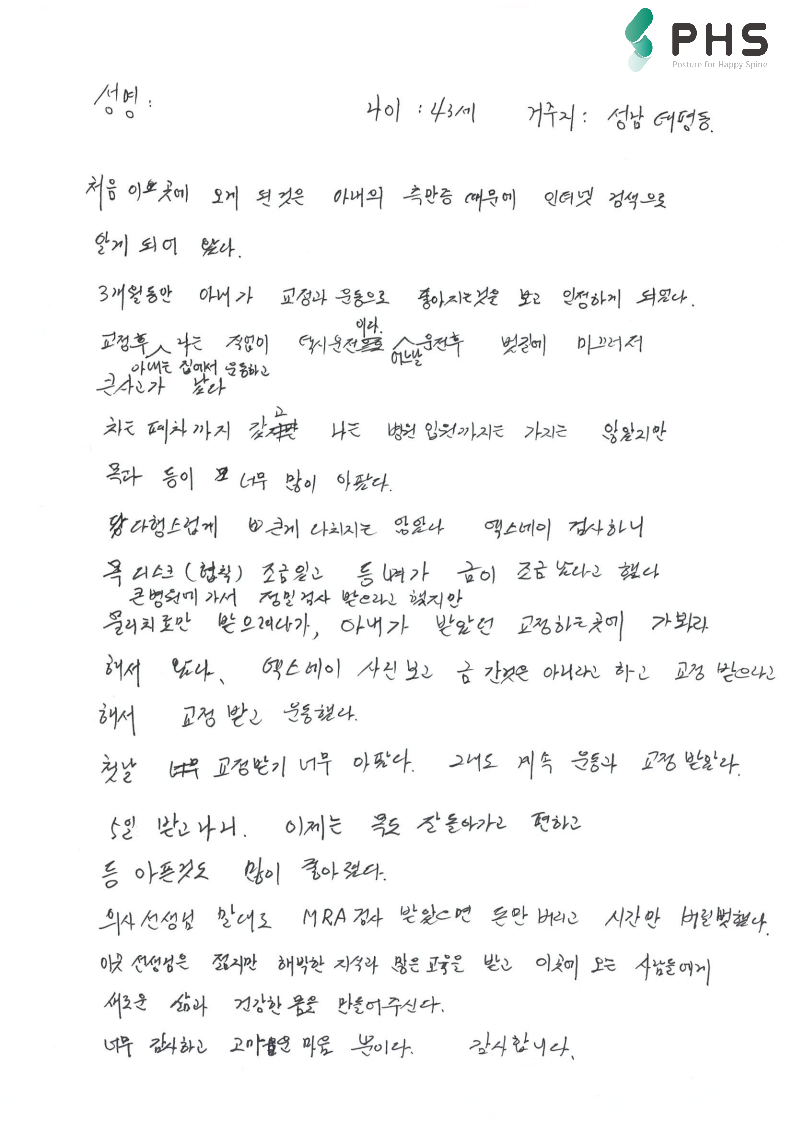 PHS
Posture for Happy Spine
성명 :
나이 : 43세
거주지 : 성남 태평동.
처음 이 곳에 오게 된 것은 아내의 측만증 때문에 인터넷 검색으로
알게 되어 왔다.
3개월동안 아내가 교정과 운동으로 좋아지는것을 보고 인정하게 되었다.
교정후 아내는 집에서 운동하고 나는 직업이 택시운전이다. 어느날 운전후 빗길에 미끄러져
큰사고가 났다
차는 폐차까지 갔고 나는 병원 입원까지는 가지는 않았지만
목과 등이 너무 많이 아팠다.
다행스럽게 큰게 다치지는 않았다 엑스레이 검사하니
목 디스크(협착) 조금있고 등 뼈가 금이 조금 났다고 했다
큰병원에 가서 정밀검사 받으라고 했지만
물리치료만 받으려다가, 아내가 받았던 교정하는곳에 가봐라
해서 왔다. 엑스레이 사진보고 금 간것은 아니라고 하고 교정 받으라고
해서 교정 받고 운동했다.
첫날 교정받기 너무 아팠다. 그래도 계속 운동과 교정 받았다.
5일 받고나니. 이제는 목도 잘돌아가고 편하고
등 아픈것도 많이 좋아졌다.
의사선생님 말대로 MRA검사 받았으면 돈만 버리고 시간만 버릴뻣했다.
이곳 선생님은 젊지만 해박한 지식과 많은교육을 받고 이곳에 오는 사람들에게
새로운 삶과 건강한 몸을 만들어주신다.
너무 감사하고 고마운 마음 뿐이다. 감사합니다.